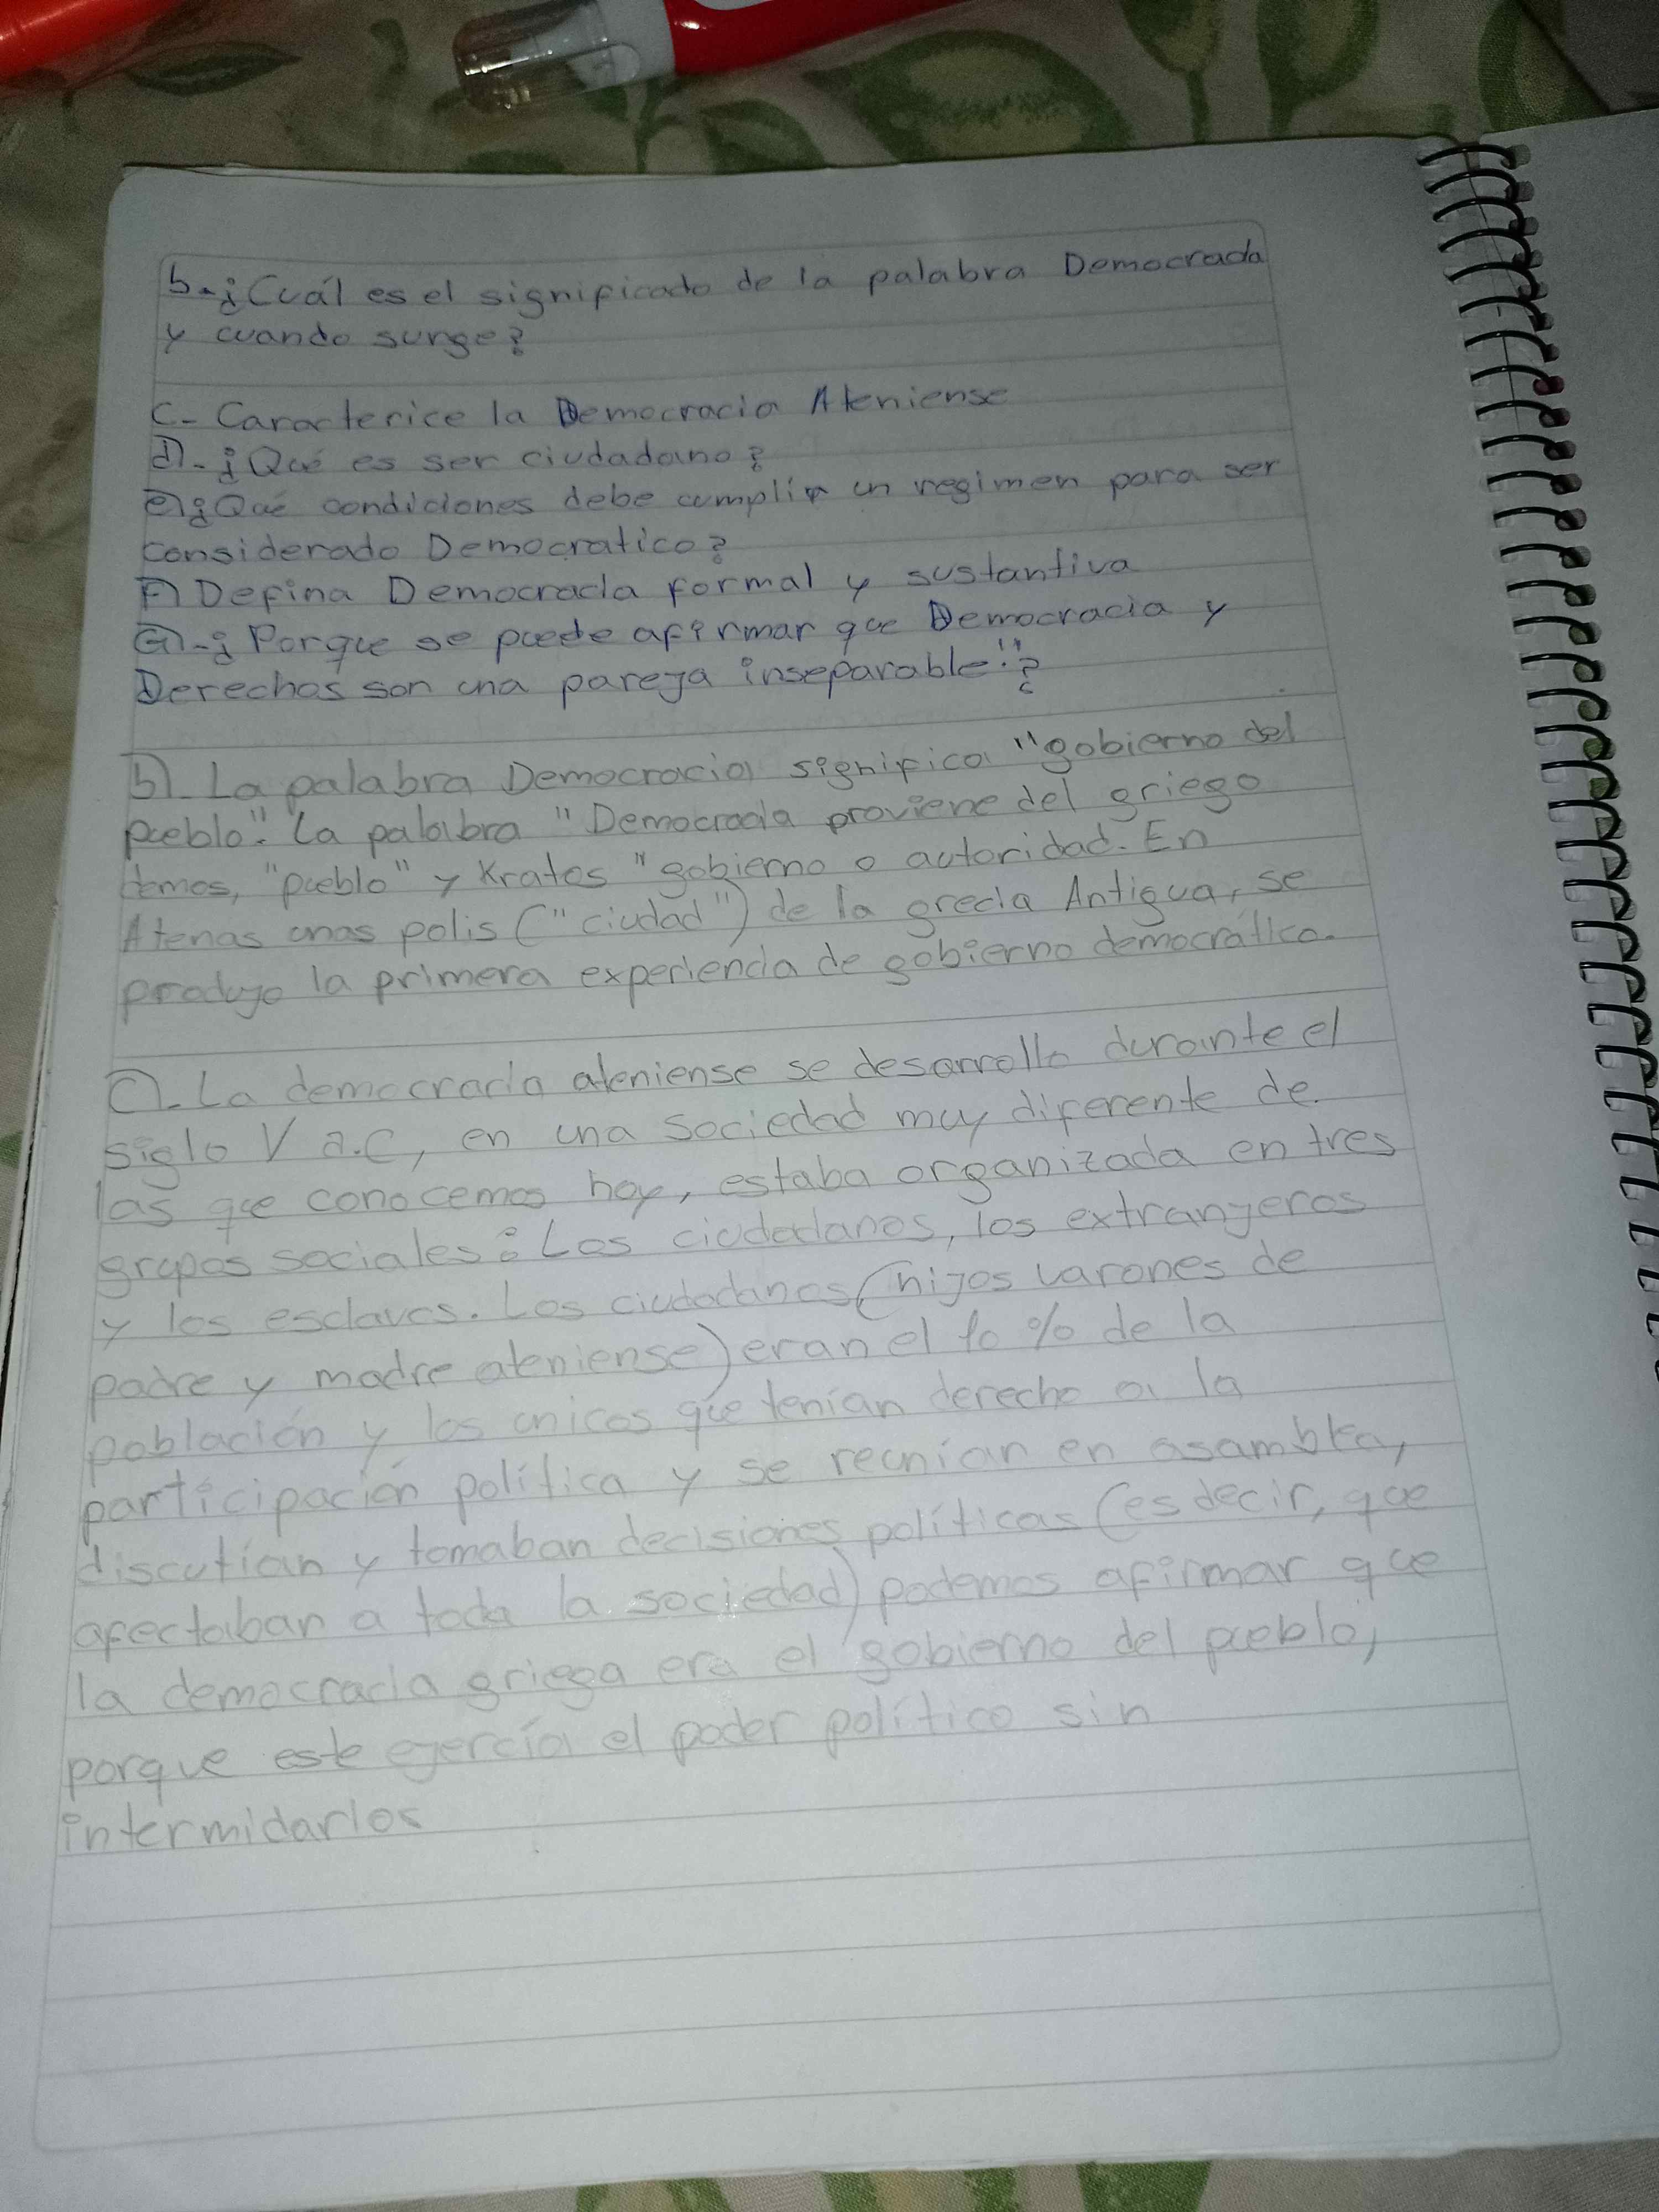 b-¿Cuál es el significado de la palabra Democracia
y cuando surge?
C- Caracterice la Democracia Ateniense
d)-¿Qué es ser ciudadano?
e)¿Qué condiciones debe cumplir un regimen para ser
considerado Democratico?
F) Defina Democracia formal y sustantiva
G)-¿Porque se puede afirmar que Democracia y
Derechos son una pareja inseparable"?
b)- La palabra Democracia significa "gobierno del
pueblo". La palabra "Democracia proviene del griego
demos, "pueblo" y Kratos "gobierno o autoridad. En
Atenas unas polis ("ciudad") de la grecia Antigua, se
produjo la primera experiencia de gobierno democrático.
C)- La democracia ateniense se desarrollo durante el
siglo V a.C, en una sociedad muy diferente de
las que conocemos hoy, estaba organizada en tres
grupos sociales: Los ciudadanos, los extranjeros
y los esclavos. Los ciudadanos (hijos varones de
padre y madre ateniense) eran el 10 % de la
población y los unicos que tenían derecho a la
participación política y se reunían en asamblea,
discutían y tomaban decisiones políticas (es decir, que
afectaban a toda la sociedad) podemos afirmar que
la democracia griega era el gobierno del pueblo,
porque este ejercía el poder político sin
intermidarios